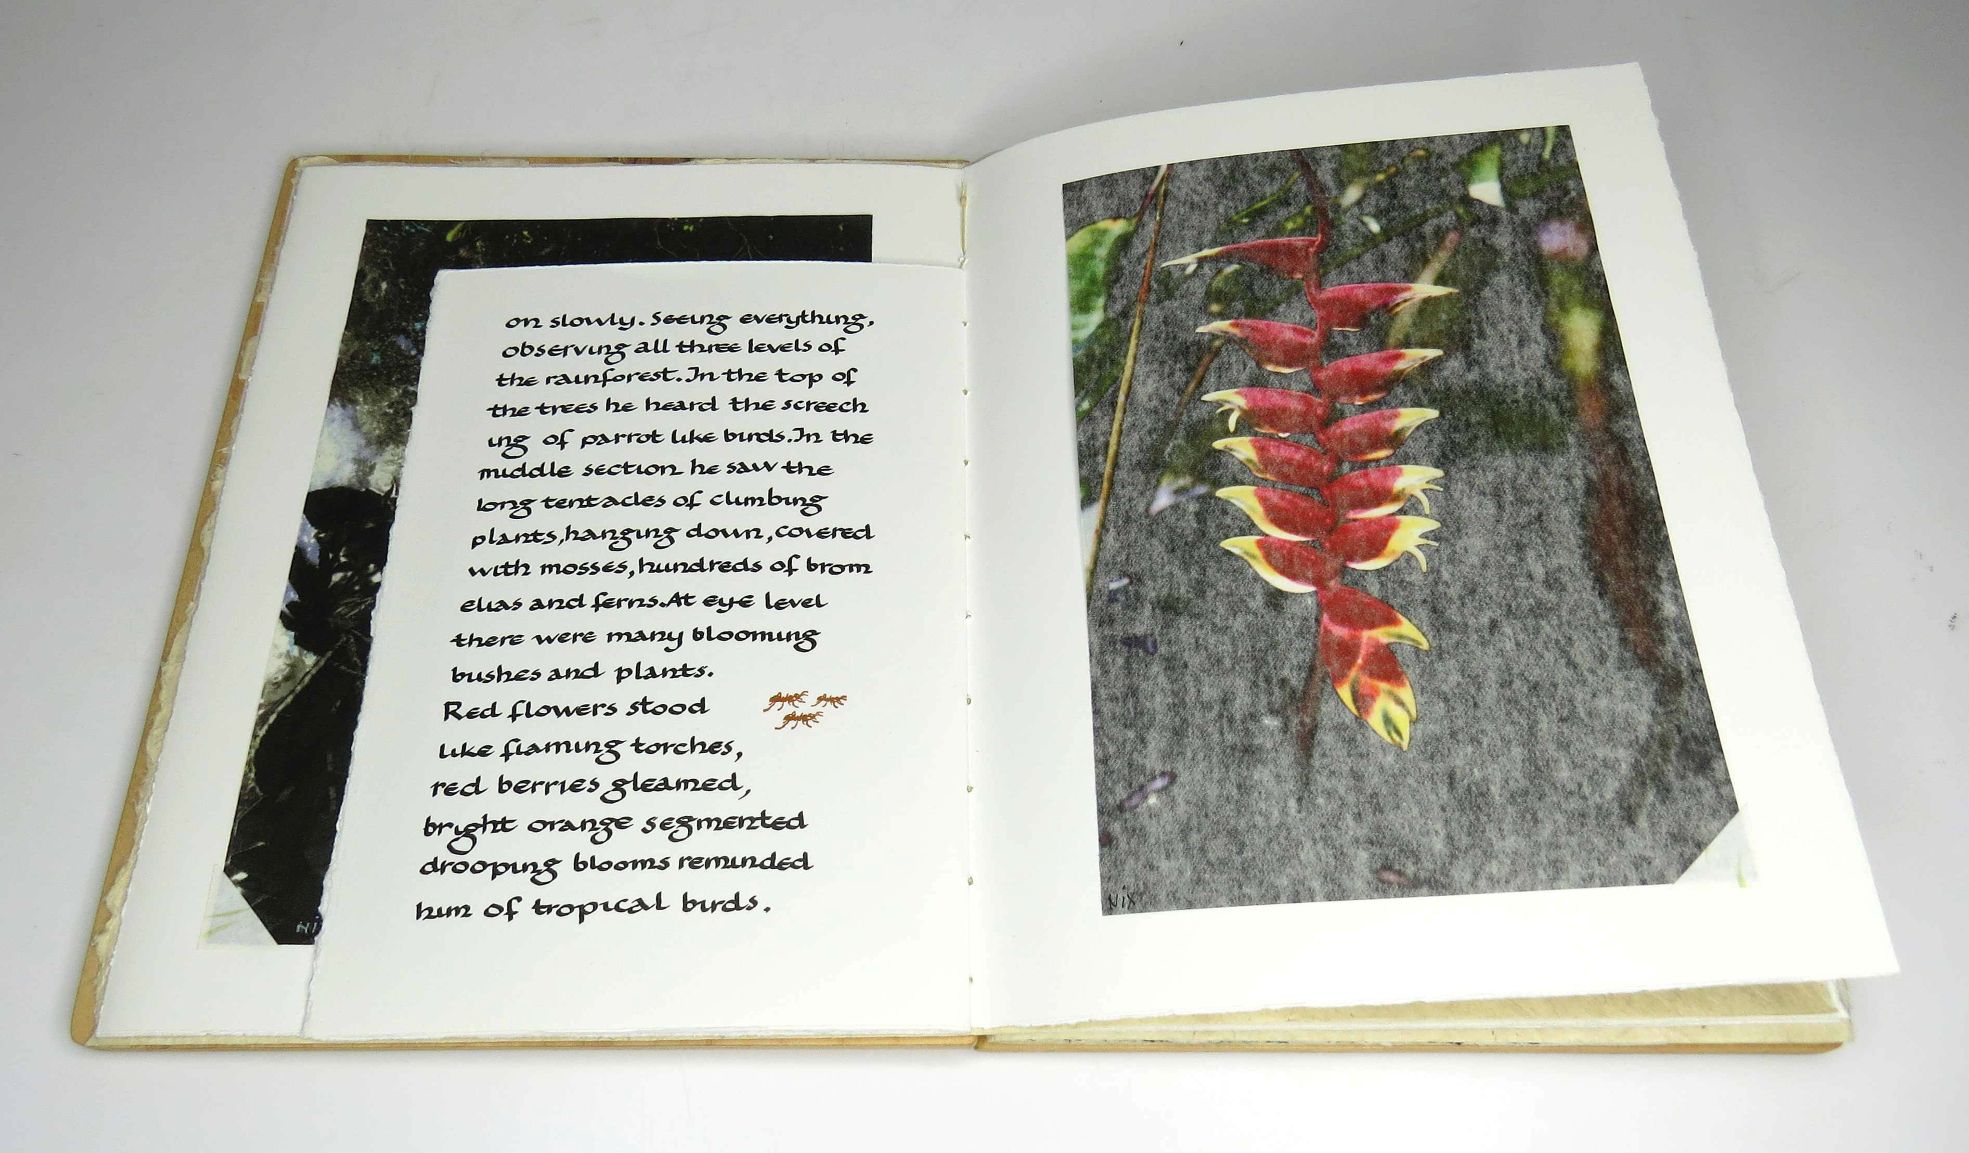 on slowly. Seeing everything,
observing all three levels of
the rainforest. In the top of
the trees he heard the screech
ing of parrot like birds. In the
middle section he saw the
long tentacles of climbing
plants, hanging down, covered
with mosses, hundreds of brom
elias and ferns. At eye level
there were many blooming
bushes and plants.
Red flowers stood
like flaming torches,
red berries gleamed,
bright orange segmented
drooping blooms reminded
him of tropical birds.
Ni
Nix